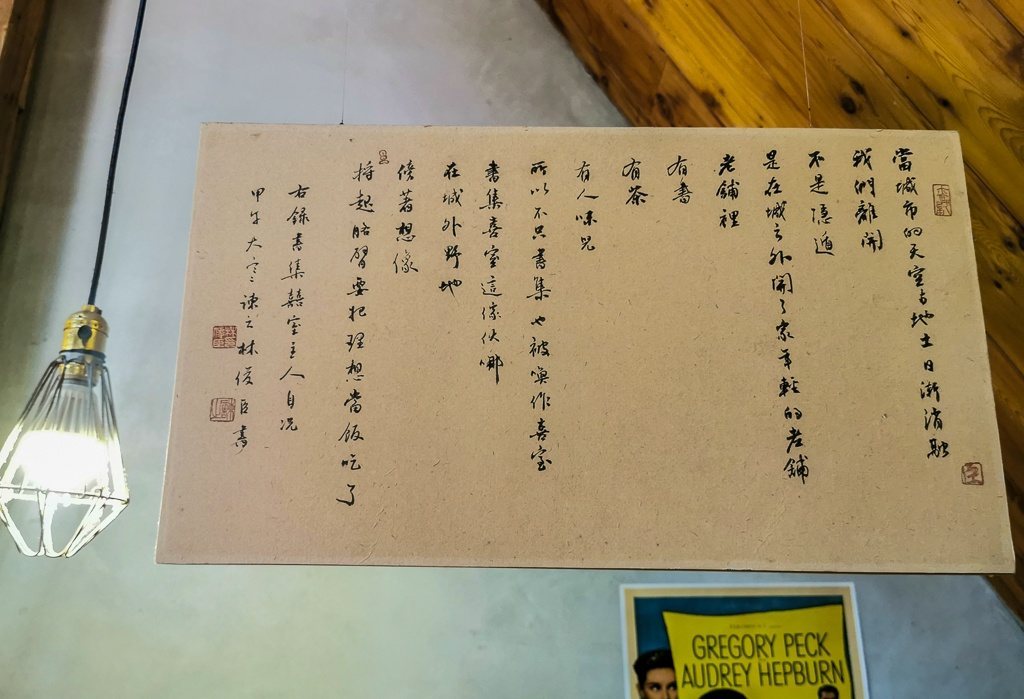 當城市的天空与地土日漸消融
我們離開
不是隱遁
是在城之外開了家年輕的老鋪
老鋪裡
有書
有茶
有人味兒
所以不只書集也被喚作喜室
書集喜室這傢伙哪
在城外野地
傍著想像
捋起胳臂要把理想當飯吃了
右録書集囍室主人自况
甲午大寒諫之林俊臣書
GREGORY PECK
AUDREY HEPBURN